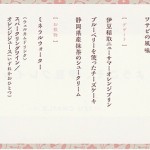 ワサビの風味
伊豆稲取ニューサマーオレンジプリン
ブルーベリーを使ったチーズケーキ
静岡県産抹茶のシュークリーム
ミネラルウォーター
スパークリングワイン/
オレンジジュース(いずれかおひとつ)